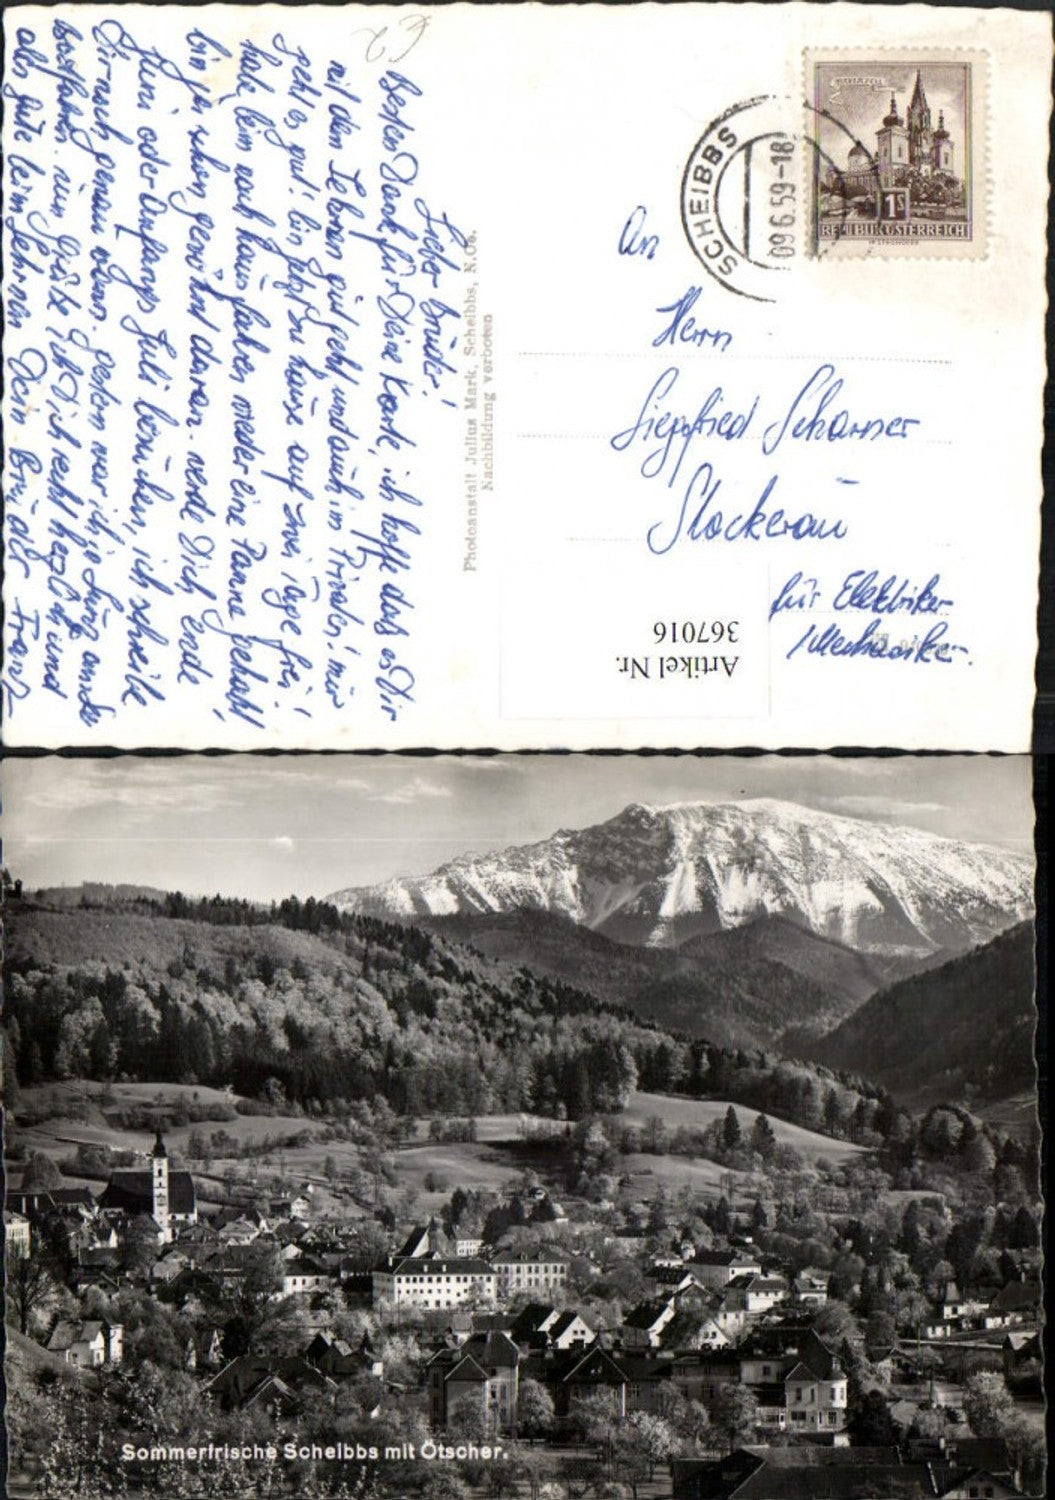 € 2
Lieber Bruder!
Besten Dank für Deine Karte, ich hoffe daß es Dir
mit dem Lehren gut geht und auch im Privaten! mir
geht es gut! bin jetzt zu hause auf zwei Tage frei!
habe beim nach hause fahren wieder eine Panne gehabt
bin ja schon gewöhnt daran. werde Dich Ende
Juni oder Anfangs Juli besuchen, ich schreibe
Dir noch genau wann. gestern war ich in
nun Grüße ich Dich recht herzlich und
alles gute beim Lehren Dein Bruder Franz
Photoanstalt Julius Mark, Scheibbs, N.Oe.
Nachbildung verboten
SCHEIBBS
09.6.59-18
MARIAZELL
1S
REPUBLIK ÖSTERREICH
An
Herrn
Siegfried Scharner
Stockerau
für Elektriker
Mechaniker.
Artikel Nr.
367016
Sommerfrische Scheibbs mit Ötscher.